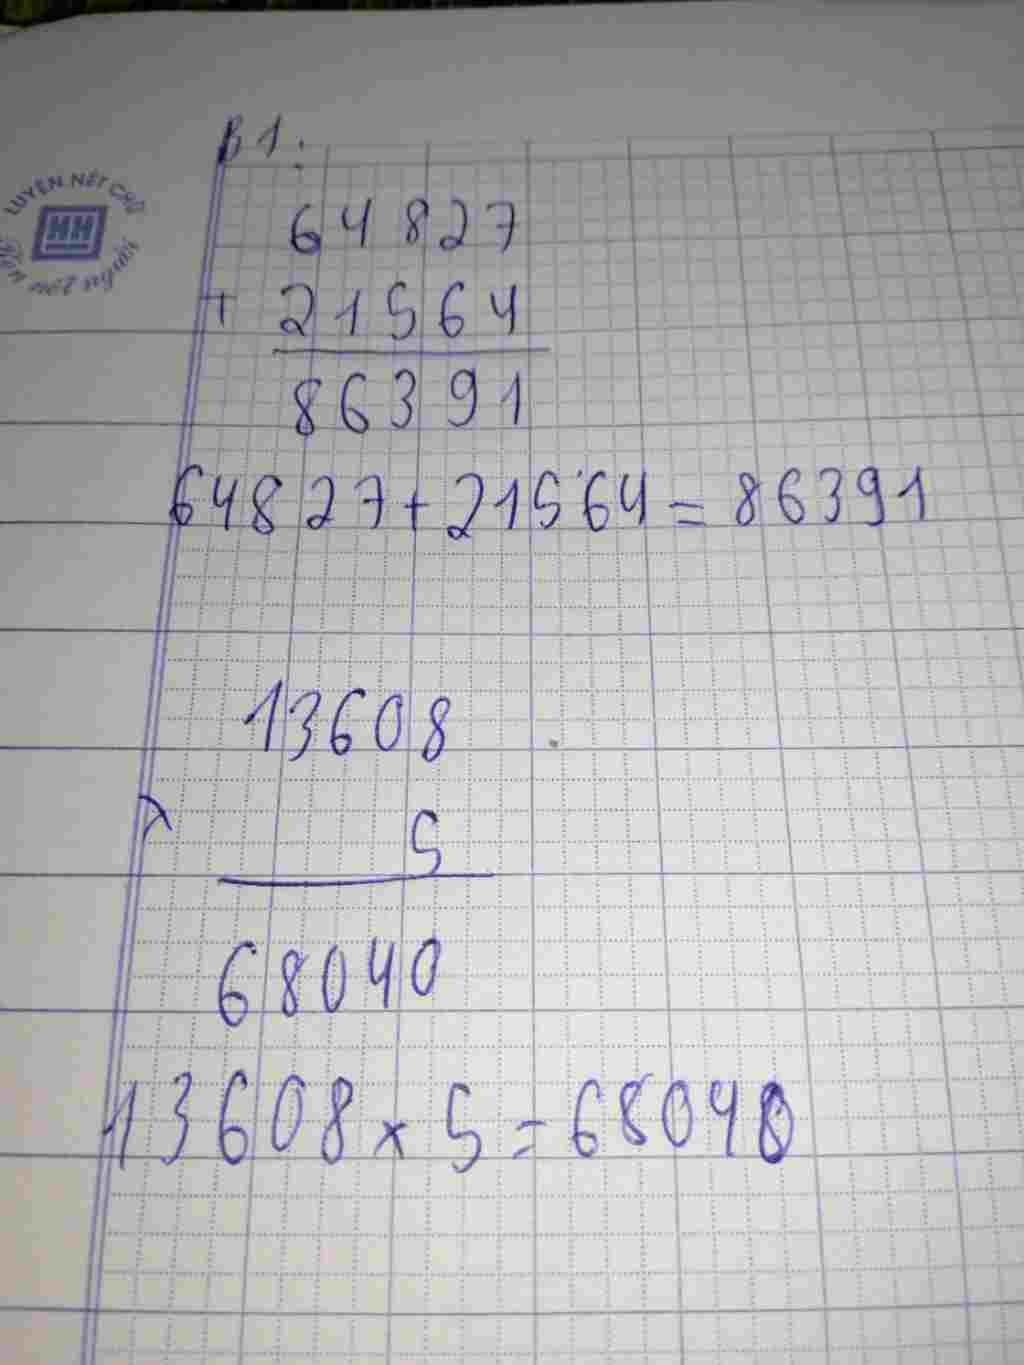 B1:
LUYỆN NÉT CHỮ
HH
64827
+ 21564
86391
64827+21564=86391
13608
×
5
68040
13608×5=68040